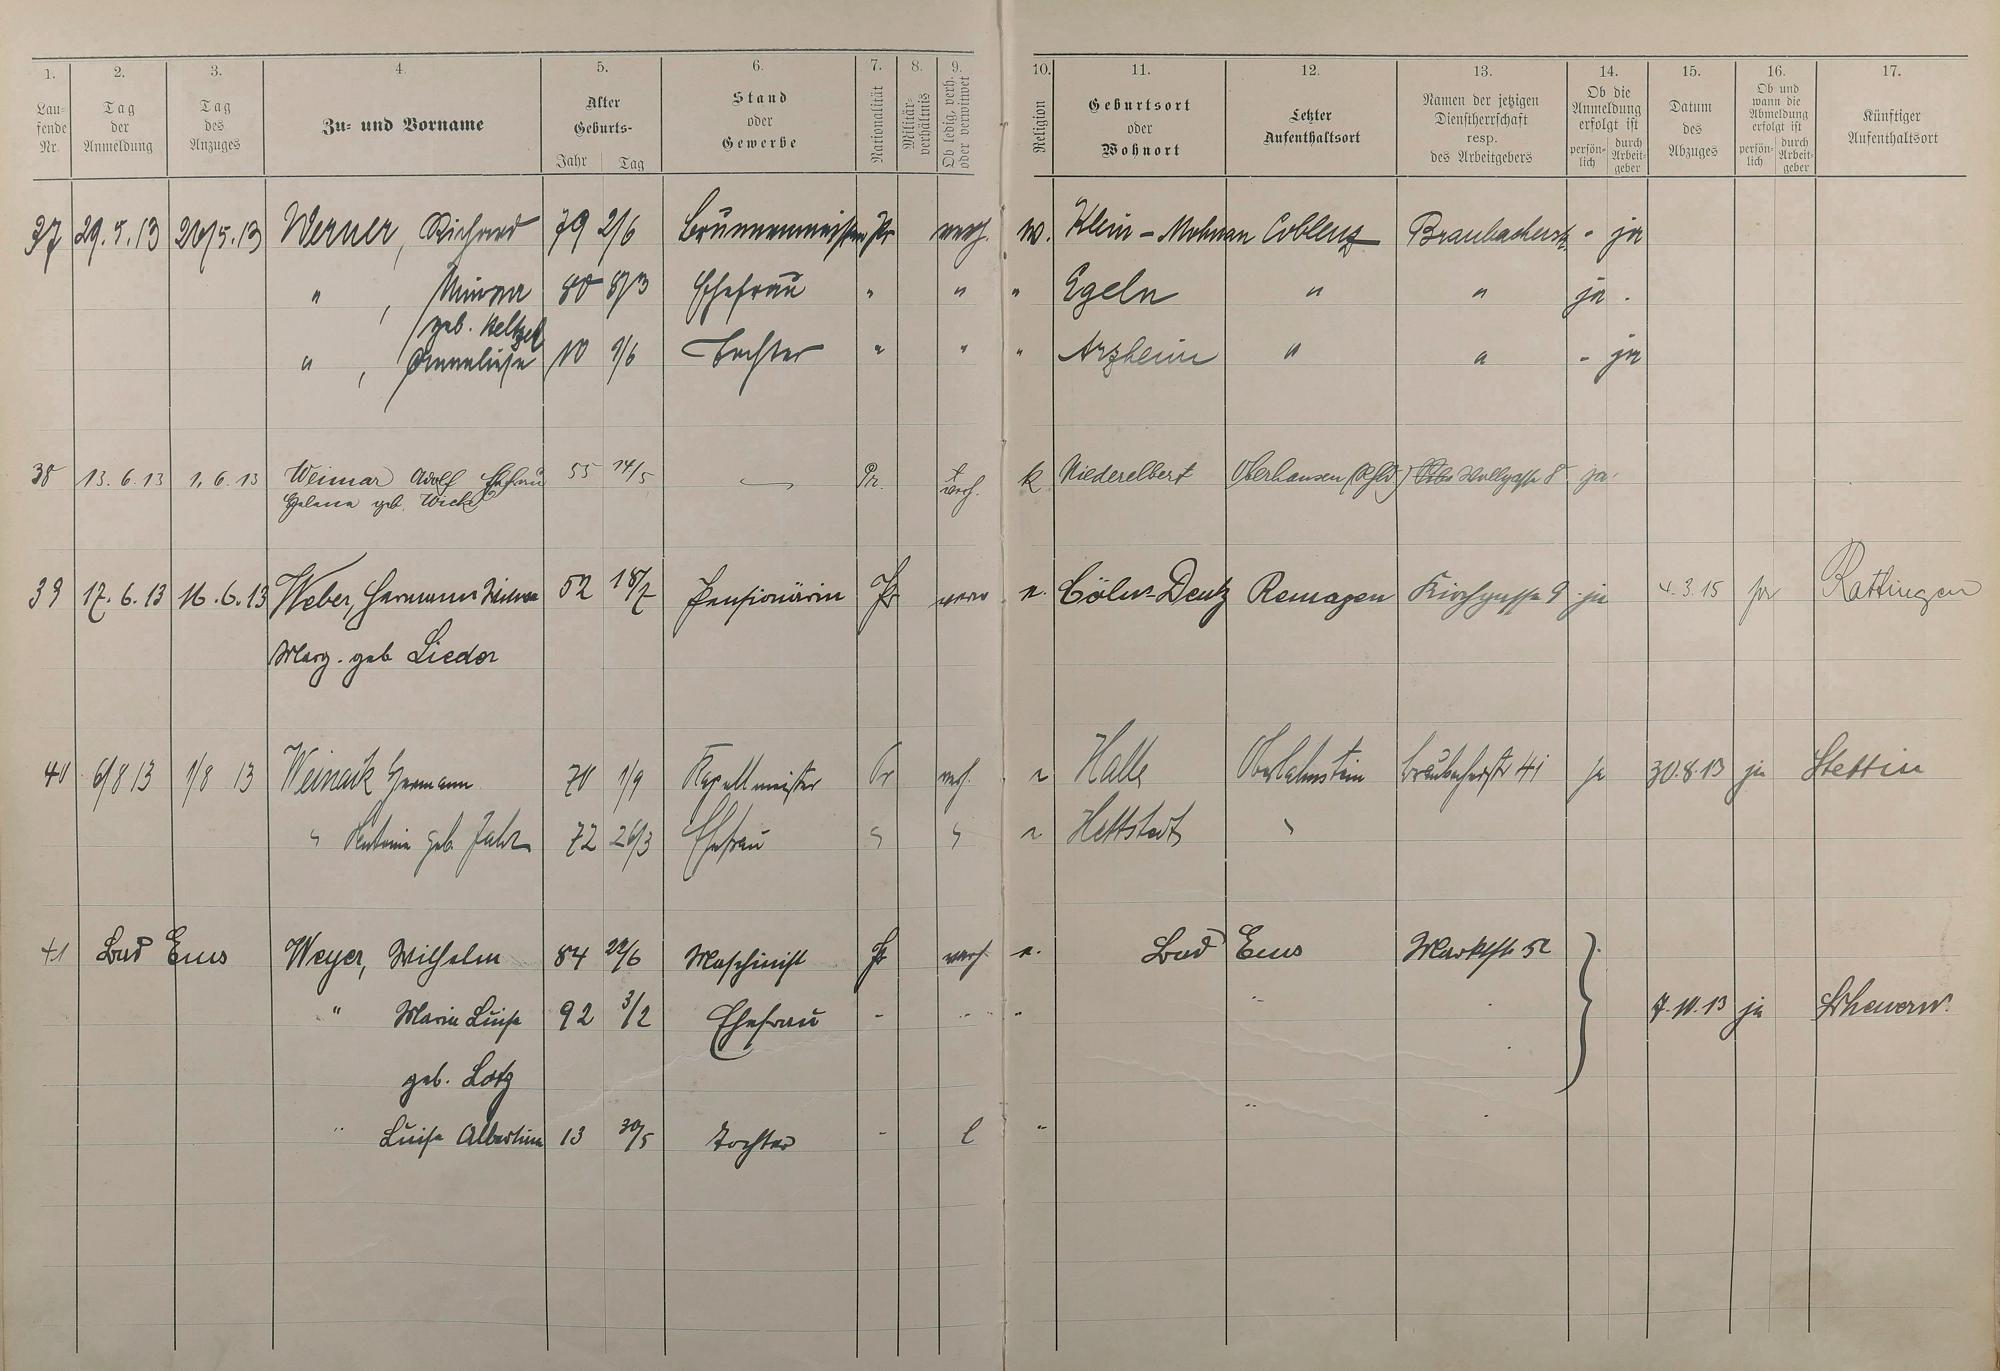 1. 2. 3. 4. 5. 6. 7. 8. 9. 10. 11. 12. 13. 14. 15. 16. 17.
Lau-
fende
Nr.
Tag
der
Anmeldung
Tag
des
Anzuges
Zu- und Vorname
Alter
Geburts-
Jahr Tag
Stand
oder
Gewerbe
Nationalität
Militär-
verhältnis
Ob ledig, verh.
oder verwitwet
Religion
Geburtsort
oder
Wohnort
Letzter
Aufenthaltsort
Namen der jetzigen
Dienstherrschaft
resp.
des Arbeitgebers
Ob die
Anmeldung
erfolgt ist
persön-
lich
durch
Arbeit-
geber
Datum
des
Abzuges
Ob und
wann die
Abmeldung
erfolgt ist
persön-
lich
durch
Arbeit-
geber
Künftiger
Aufenthaltsort
37 29.5.13 20/5.13 Werner, Richard 79 2/6 Brunnenmeister Pr verh. Klein - Coblenz Braubacherstr - ja
" , Minna 80 Ehefrau " " " Egeln " " ja -
geb.
" , Anneliese 10 1/6 Tochter " " " Arzheim " " - ja
38 13.6.13 1.6.13 Weimar Adolf Ehefrau 55 14/5 — Pr. verh. k Niederelbert Oberhausen (Rhld) Wallgasse 8 ja.
Helene geb. Wicke
39 17.6.13 16.6.13 Weber, Hermann Witwe 52 18/7 Pensionärin Pr verw e. Cöln-Deutz Remagen Kirchgasse 9 ja 4.3.15 ja Rattingen
Marg. geb Lieder
40 6/8 13 1/8 13 Hermann 70 1/9 Kapellmeister Pr verh. Halle Oberlahnstein Braubacherstr 41 ja 30.8.13 ja Stettin
" geb. 72 26/3 Ehefrau " " Hettstedt "
41 Bad Ems Weyer, Wilhelm 84 22/6 Maschinist Pr verh. e. Bad Ems Marktstr 52
" Marie Luise 92 3/2 Ehefrau - " " " 7.10.13 ja
geb. Lotz
" Luise Albertine 13 30/5 Tochter - l " "